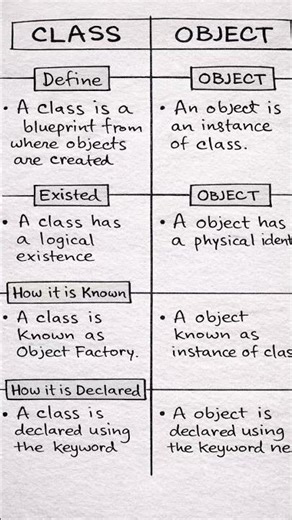 CLASS
OBJECT
Define
OBJECT
• A class is a
blueprint from
where objects
are created
• An object is
an instance
of class.
Existed
OBJECT
• A class has
a logical
existence
• A object has
a physical ident
How it is Known
• A class is
known as
Object Factory.
• A object
known as
instance of clas
How it is Declared
• A class is
declared using
the keyword
• A object is
declared using
the keyword ne